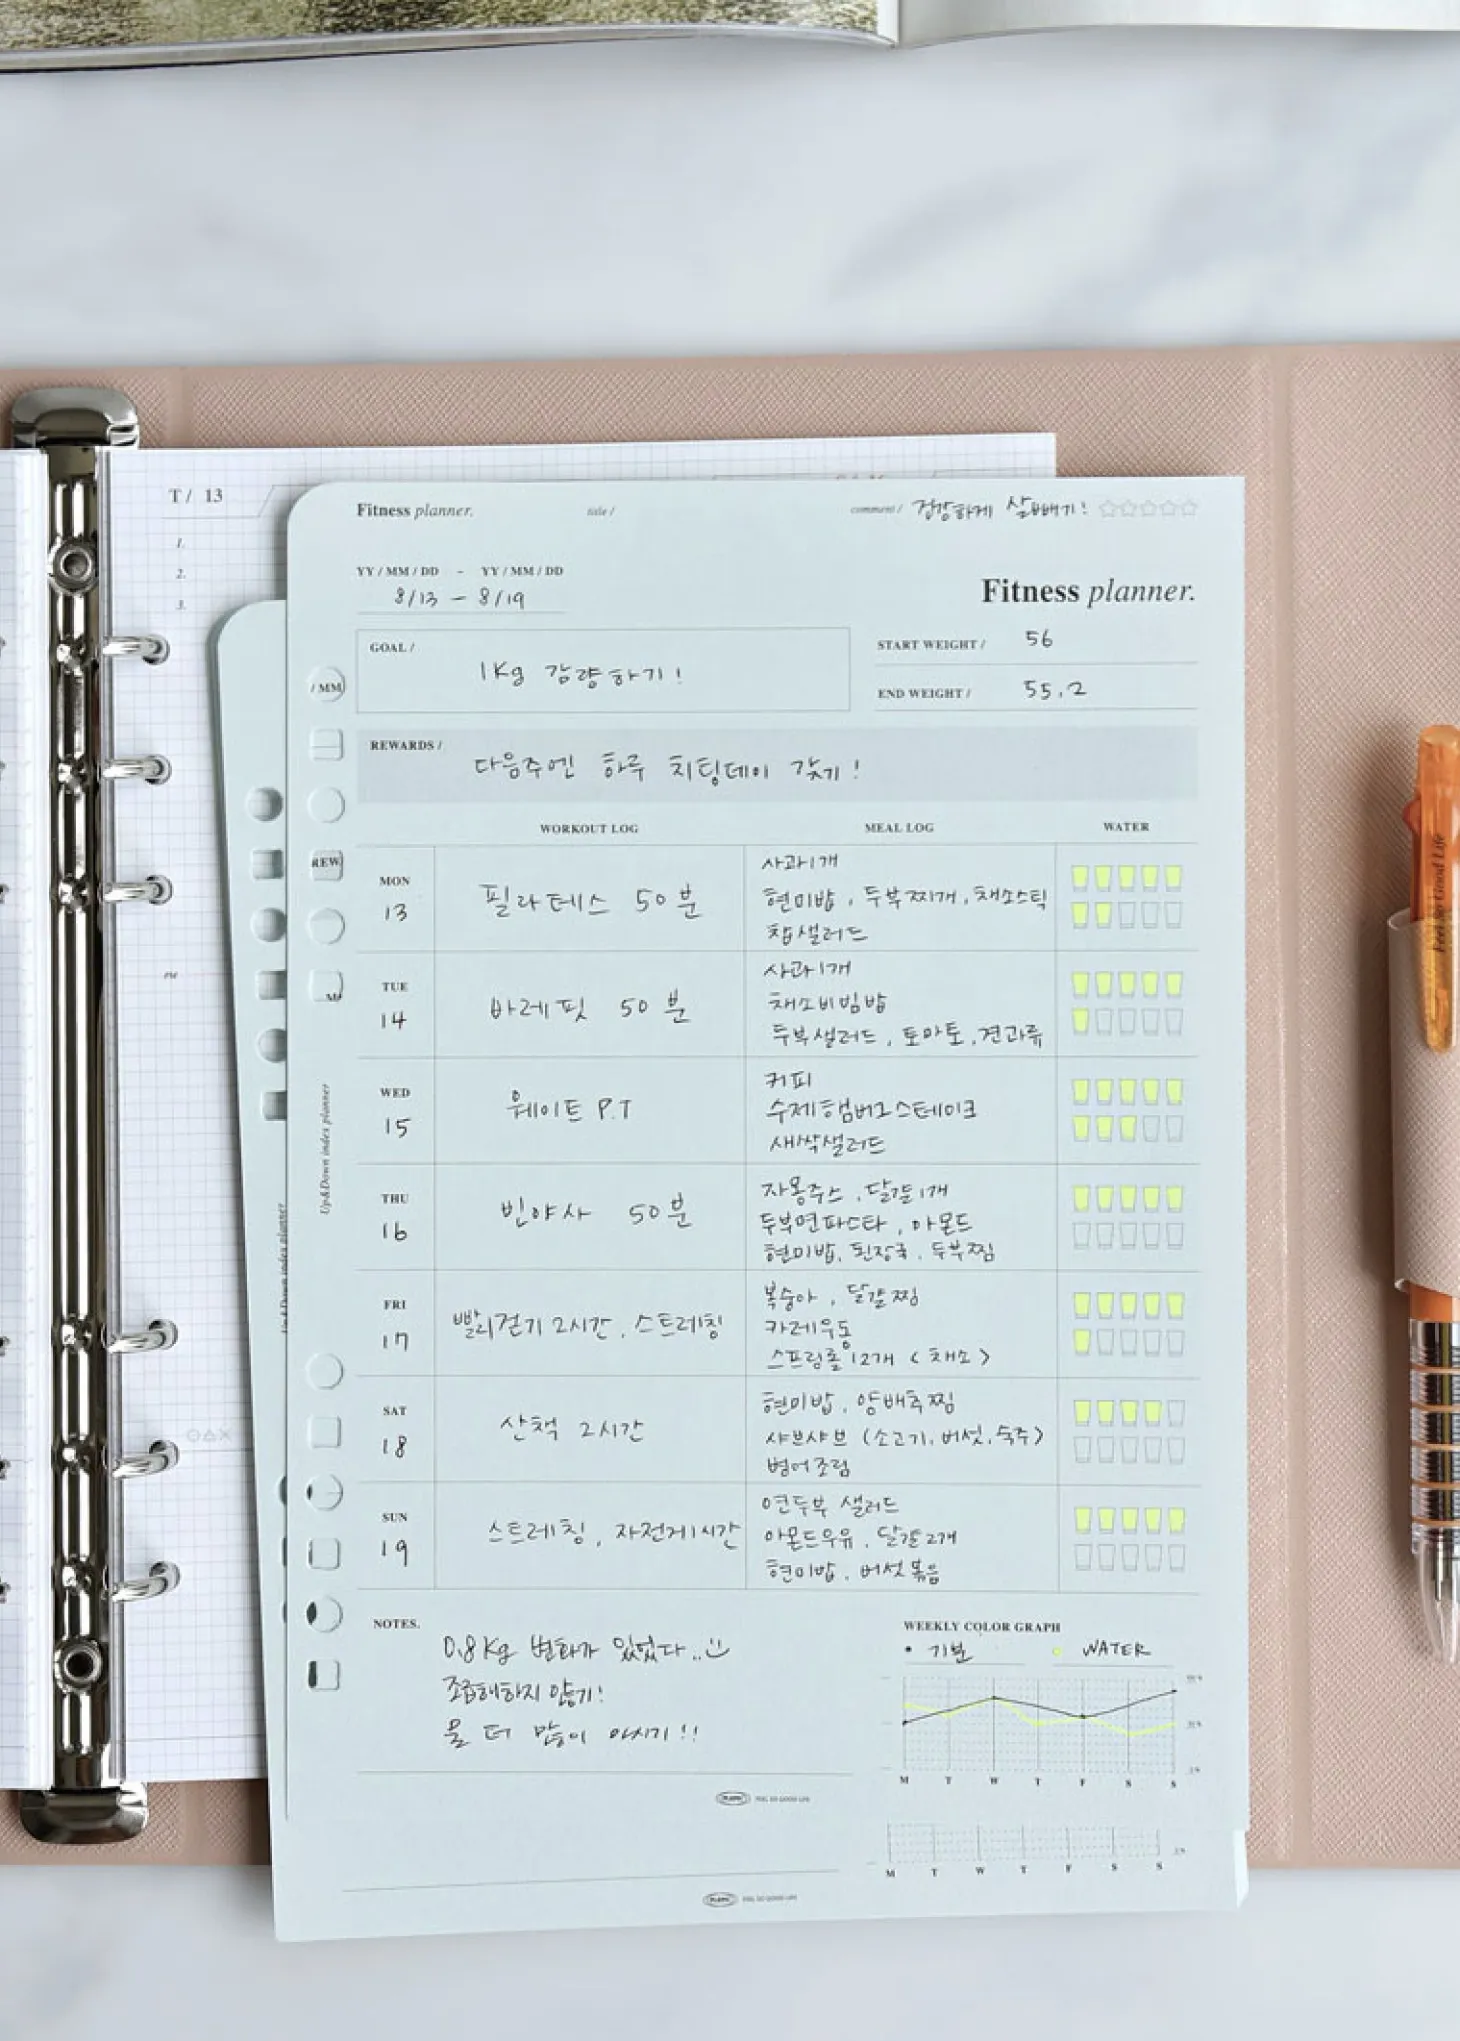 T / 13
1.
2.
3.
PM
Fitness planner.
title /
comment / 건강하게 살빼기!
YY / MM / DD - YY / MM / DD
8/13 - 8/19
Fitness planner.
GOAL /
1Kg 감량하기!
START WEIGHT / 56
END WEIGHT / 55.2
REWARDS /
다음주엔 하루 치팅데이 갖기!
WORKOUT LOG
MEAL LOG
WATER
MON
13
필라테스 50분
사과1개
현미밥, 두부찌개, 채소스틱
찹샐러드
TUE
14
바레핏 50분
사과1개
채소비빔밥
두부샐러드, 토마토, 견과류
WED
15
웨이트 P.T
커피
수제햄버그스테이크
새싹샐러드
THU
16
빈야사 50분
자몽주스, 달걀1개
두부면파스타, 아몬드
현미밥, 된장국, 두부찜
FRI
17
빨리걷기 2시간, 스트레칭
복숭아, 달걀찜
카레우동
스프링롤 2개 (채소)
SAT
18
산책 2시간
현미밥, 양배추찜
샤브샤브 (소고기, 버섯, 숙주)
병어조림
SUN
19
스트레칭, 자전거1시간
연두부 샐러드
아몬드우유, 달걀2개
현미밥, 버섯볶음
/ MM
REW
Up&Down index planner
Up&Down index planner
NOTES.
0.8Kg 변화가 있었다..
조급해하지 않기!
물 더 많이 마시기!!
WEEKLY COLOR GRAPH
기분
WATER
M T W T F S S
FEEL SO GOOD LIFE
M T W T F S S
FEEL SO GOOD LIFE
Feel so Good Life